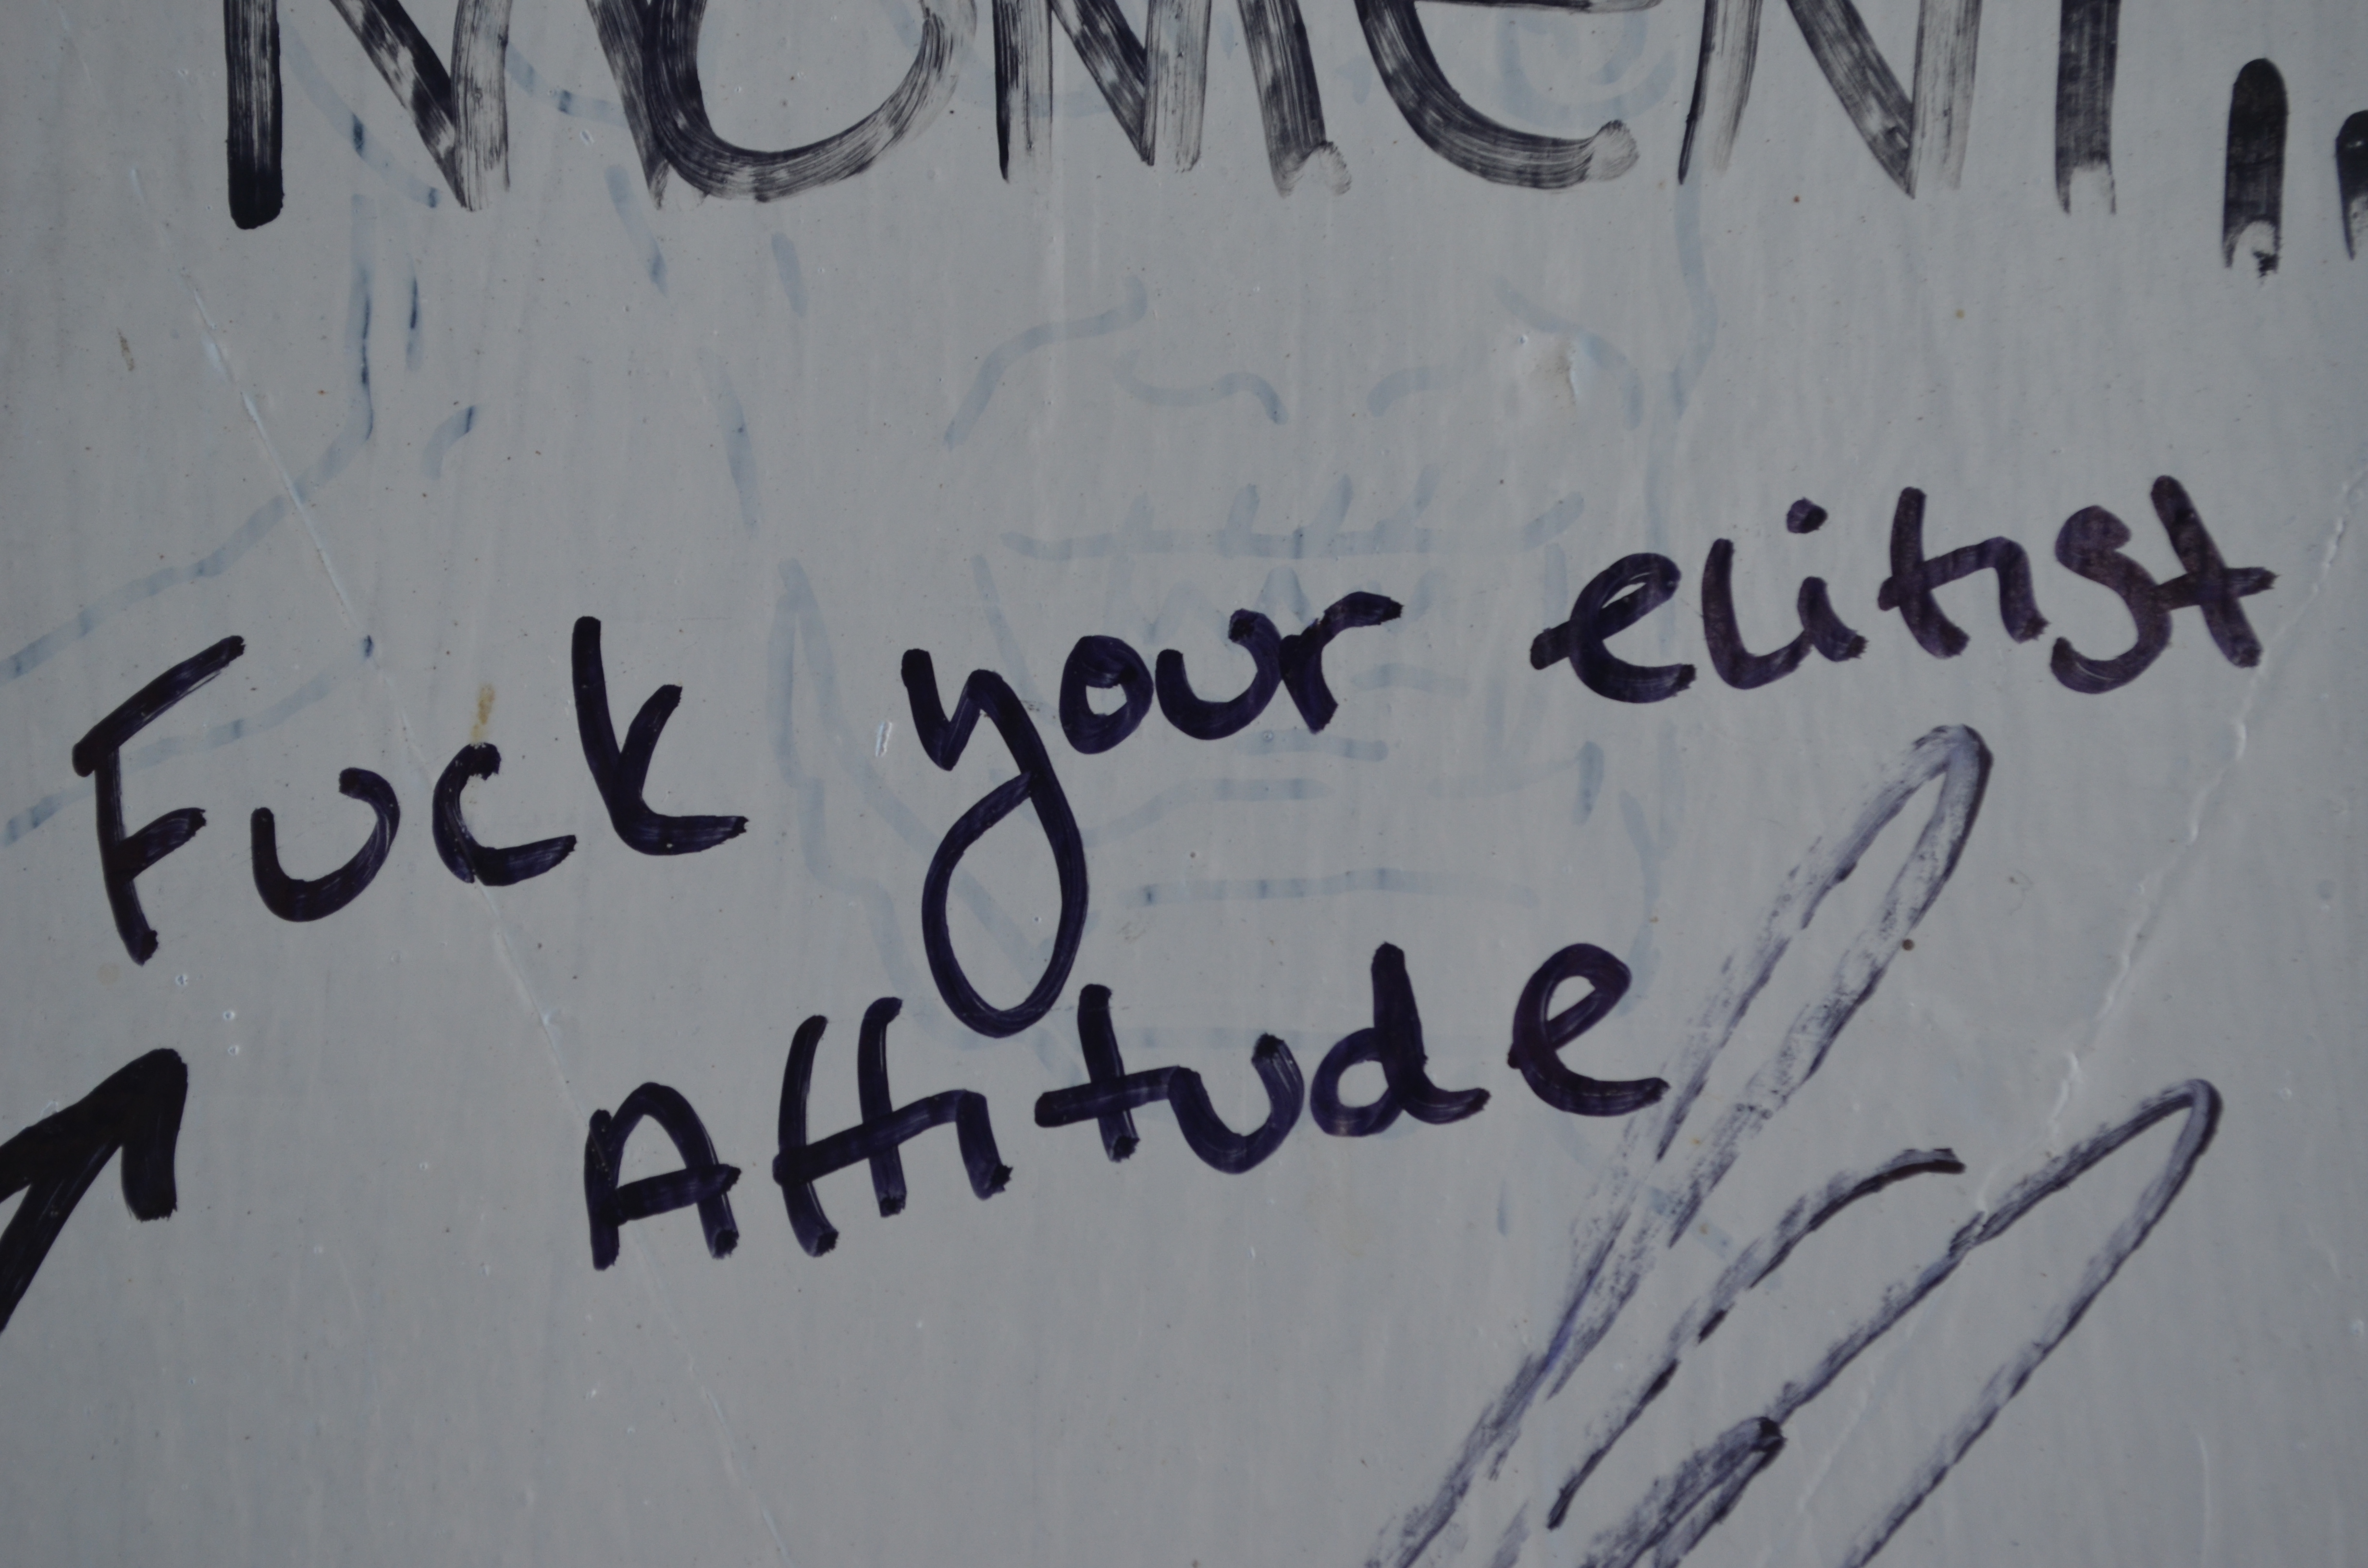 MOMENT..
Fuck your elitist
Attitude